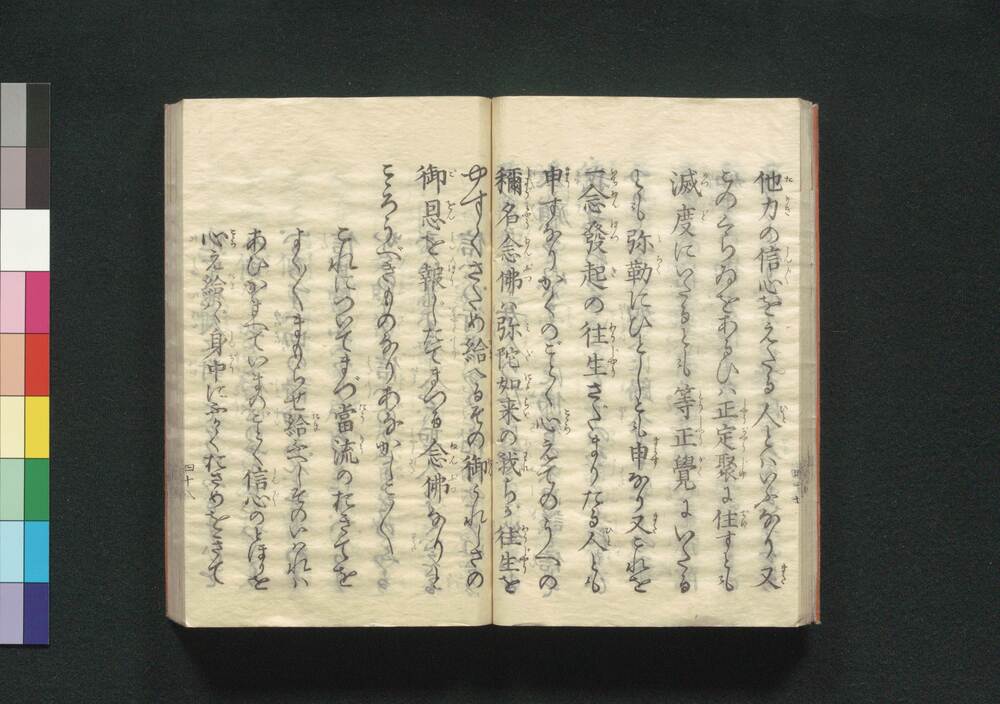 他力の信心をえたる人とはいふなり又
このくらゐをあるひは正定聚に住すとも
滅度にいたるとも等正覺にいたる
とも弥勒にひとしとも申なり又これを
一念發起の往生さだまりたる人とも
申すなりかくのごとく心えてのうへの
稱名念佛は弥陀如来の我らが往生を
やすくさだめ給へるその御うれしさの
御恩を報じたてまつる念佛なりと
こゝろうべきものなりあなかしこ〳〵
これについてまづ當流のおきてを
よく〳〵まもらせ給べしそのいはれは
あひかまへていまのごとく信心のとほりを
心え給はゞ身中にふかくおさめをきて
四十八